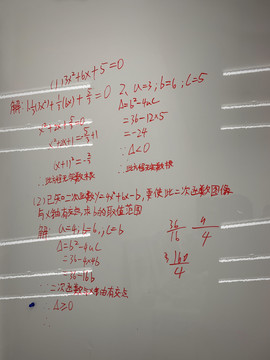 (1) 3x²+6x+5=0
解: 1/3(3x²)+1/3(6x)+5/3=0
x²+2x+5/3=0
x²+2x+1=-5/3+1
(x+1)²=-2/3
∴此方程无实数根
2、a=3;b=6;c=5
Δ=b²-4ac
=36-12×5
=-24
∴Δ<0
∴此方程无实数根
(2)已知二次函数y=4x²+6x-b,要使此二次函数图像
与x轴有交点,求b的取值范围
解: a=4;b=6,,c=b
Δ=b²-4ac
=36-4×4b
=36-16b
∵二次函数与x轴有交点
∴Δ≥0
36/16
9/4
4